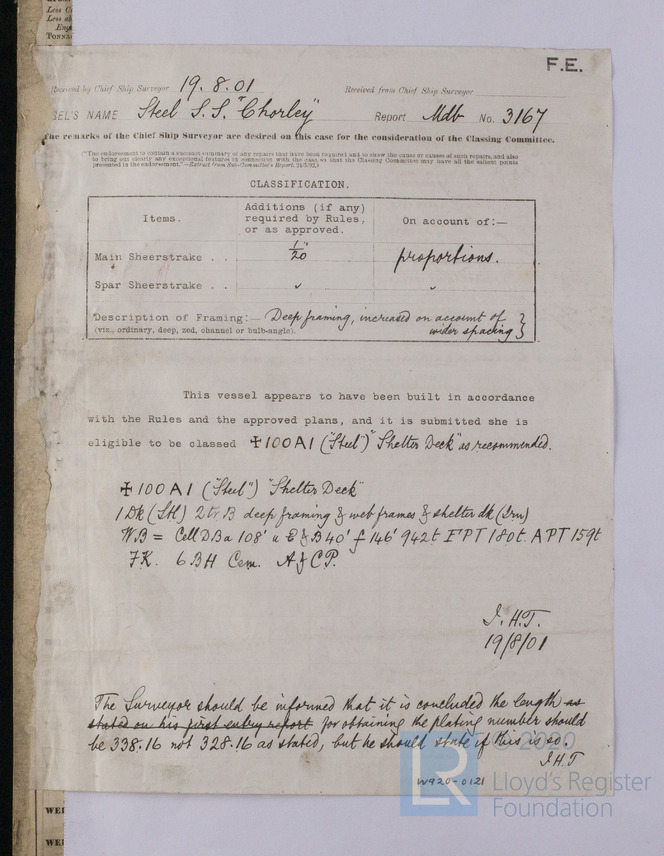 Less
Less
TONNA
F.E.
Received by Chief Ship Surveyor 19.8.01 Received from Chief Ship Surveyor
SEL'S NAME Steel S.S. "Chorley" Report Mdb No. 3167
The remarks of the Chief Ship Surveyor are desired on this case for the consideration of the Classing Committee.
("The endorsement to contain a succinct summary of any repairs that have been required and to show the cause or causes of such repairs, and also
to bring out clearly any exceptional features in connection with the case so that the Classing Committee may have all the salient points
presented in the endorsement."—Extract from Sub-Committee's Report,
CLASSIFICATION.
Items. Additions (if any) required by Rules, or as approved. On account of:—
Main Sheerstrake . . 1/20" proportions.
Spar Sheerstrake . . " "
Description of Framing:— Deep framing, increased on account of
(viz., ordinary, deep, zed, channel or bulb-angle). wider spacing }
This vessel appears to have been built in accordance
with the Rules and the approved plans, and it is submitted she is
eligible to be classed ✠100A1 ("Steel") "Shelter Deck" as recommended.
✠100A1 ("Steel") "Shelter Deck"
1Dk (Stl) 2tr B deep framing & web frames & shelter dk (Irn)
WB = Cell DBa 108' u E&B 40' f 146' 942t FPT 180t. APT 159t
FK. 6BH Cem. A&CP.
J.H.T.
19/8/01
The Surveyor should be informed that it is concluded the length as
stated on his first entry report for obtaining the plating number should
be 338.16 not 328.16 as stated, but he should state if this is so.
J.H.T
W920-0121
LR © 2020
Lloyd's Register
Foundation
WE
WE